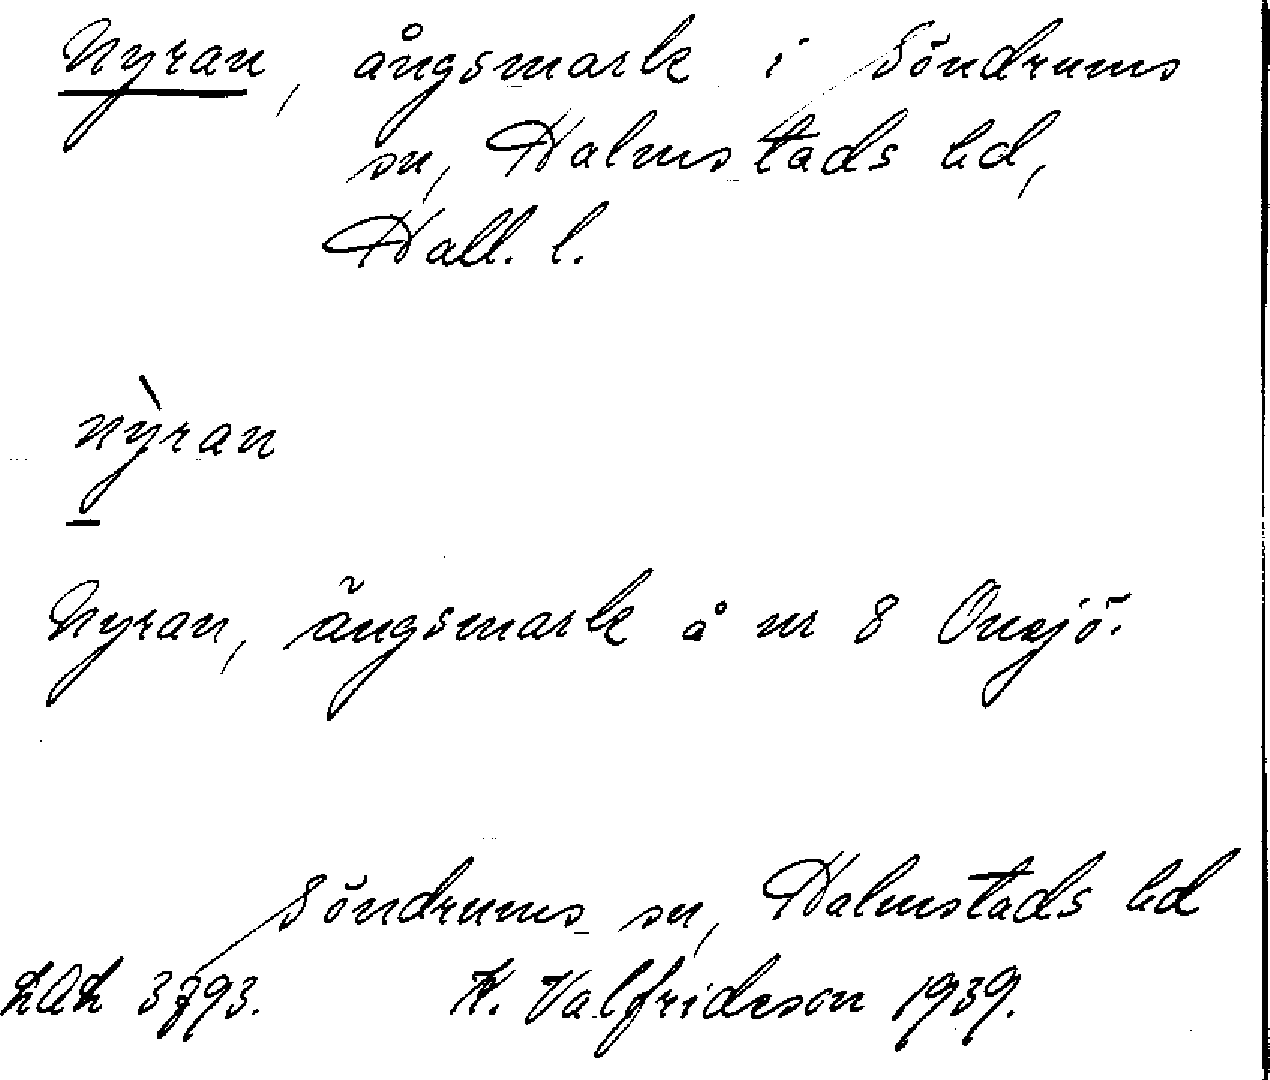 Nyran, ångsmark i Söndrums
sn, Halmstads hd,
Hall. l.
nỳran
Nyran, ängsmark å nr 8 Onsjö.
Söndrums sn, Halmstads hd
LAL 3793. K. Valfridsson 1939.